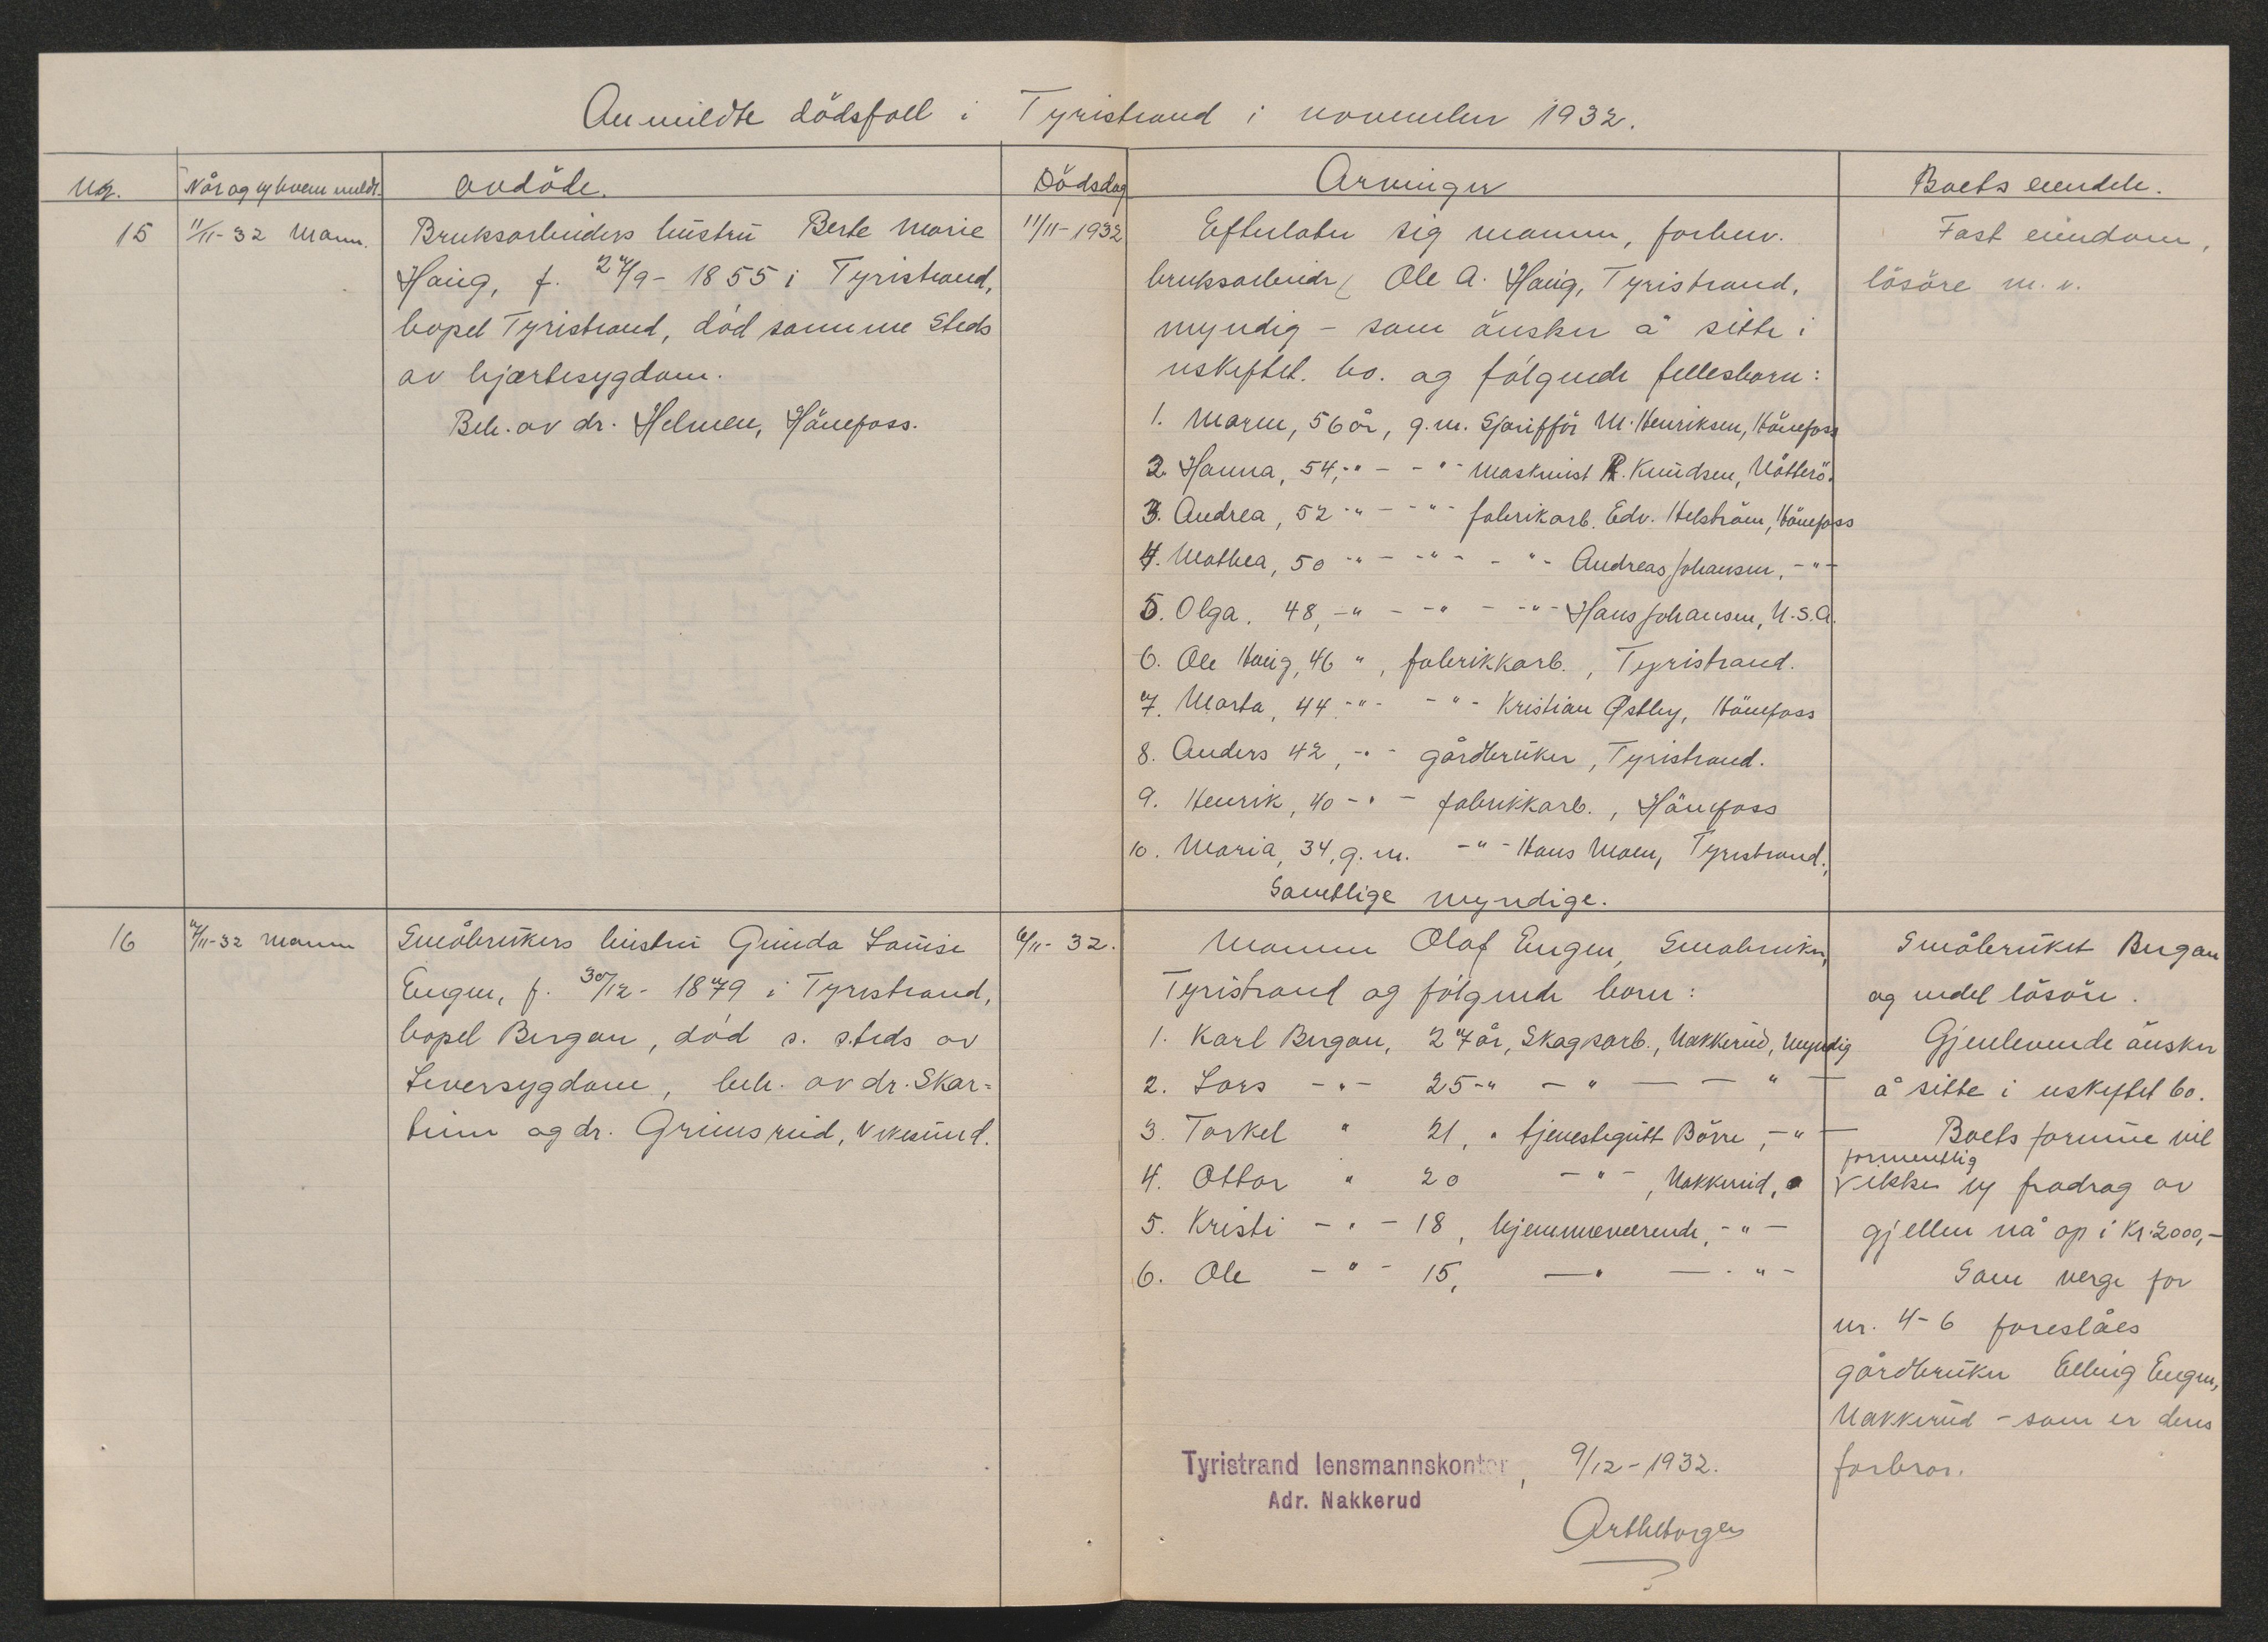 Anmeldte dödsfall i Tyristrand i november 1932.
Nr. Når og av hvem meldt. Avdöde. Dödsdag Arvinger Boets eiendele.
15 11/11-32 Mann. Bruksarbeiders hustru Berte Marie
Haug, f. 27/9-1855 i Tyristrand,
bopel Tyristrand, död samme steds
av hjertesygdom.
Beh. av dr. Helmen, Hönefoss.
11/11-1932
Efterlater sig mannen, forhenv.
bruksarbeider Ole A. Haug, Tyristrand,
myndig - som önsker å sitte i
uskiftet. bo. og fölgende fellesbarn:
1. Maren, 56 år, g.m. Sjafför M. Henriksen, Hönefoss
2. Hanna, 54, -"- -"- Maskinist R. Knudsen, Nötterö.
3. Andrea, 52 -"- -"- fabrikarb. Edv. Helström, Hönefoss
4. Mathea, 50 -"- -"- -"- Andreas Johansen, -"-
5. Olga, 48, -"- -"- -"- Hans Johansen, U.S.A.
6. Ole Haug, 46 ", fabrikkarb., Tyristrand.
7. Marta, 44 -"- -"- Kristian Østby, Hönefoss
8. Anders 42, -"- gårdbruker, Tyristrand.
9. Henrik, 40 -"- fabrikkarb., Hönefoss
10. Maria, 34, g.m. -"- Hans Moen, Tyristrand.,
Samtlige myndige.
Fast eiendom,
lösöre m.v.
16 /11-32 Mann Småbrukers hustru Gunda Louise
Engen, f. 30/12-1879 i Tyristrand,
bopel Bergan, död s. steds av
Leversygdom, beh. av dr. Skar=
tum og dr. Grimsrud, Vikesund.
/11-32.
Mannen Olaf Engen, Småbruker,
Tyristrand og fölgende barn:
1. Karl Bergan, 27 år, Skogsarb., Nakkerud, Myndig
2. Lars -"- 25 -"- -"- — -"-
3. Torkel " 21, " tjenestegutt Börre, -"-
4. Ottar " 20 -"-, Nakkerud,
5. Kristi -"- 18, hjemmeværende, -"-
6. Ole -"- 15, -"- -"-
Småbruket Bergan
og endel lösöre.
Gjenlevende önsker
å sitte i uskiftet bo.
Boets formue vil
formentlig
ikke ved fradrag av
gjelden nå op i Kr. 2000,-
Som verge for
nr. 4-6 foreslåes
gårdbruker Elling Engen,
Nakkerud - som er deres
farbror.
Tyristrand lensmannskontor, 9/12-1932.
Adr. Nakkerud